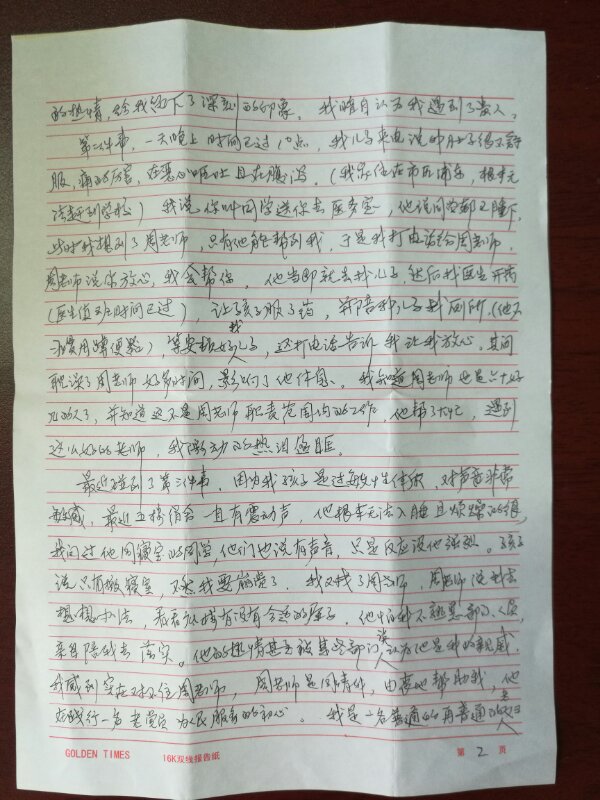 的热情,给我留下了深刻的印象。我暗自认为我遇到了贵人。
第二件事,一天晚上时间已过10点,我儿子来电说他肚子很不舒
服,痛的厉害,在恶心呕吐且在腹泻。(我家住在市区浦东,根本无
法赶到学校)我说你叫同学送你去医务室,他说同学都已睡下,
此时我想到了周老师,只有他能帮到我,于是我打电话给周老师,
周老师说你放心,我会帮你。他当即就去我儿子,然后找医生开药
(医生值班时间已过),让孩子服了药,并陪我儿子找厕所,(他不
习惯用蹲便器),等安顿好我儿子,还打电话告诉我让我放心。其间
耽误了周老师好多时间,影响了他休息。我知道周老师也是六十好
几的人了,并知道这不是周老师职责范围内的工作,他帮了大忙,遇到
这么好的老师,我感动的热泪盈眶。
最近碰到了第三件事,因为我孩子是过敏性体质,对声音非常
敏感,最近五楼宿舍一直有震动声,他根本无法入睡且烦燥的很,
我问过他同寝室的同学,他们也说有声音,只是反应没他强烈。孩子
说只有搬寝室,不然我要崩溃了。我又找了周老师,周老师说我去
想想办法,看看六楼有没有合适的房子。他怕我不熟悉部门人员,
亲自陪我去落实。他的热情甚至被某些部门人误认为他是我的亲戚。
我感到实在对不住周老师,周老师是同情我,由衷地帮助我,他是
在践行一名老党员为人民服务的初心。我是一名普通的再普通的人
GOLDEN TIMES 16K双线报告纸 第 2 页